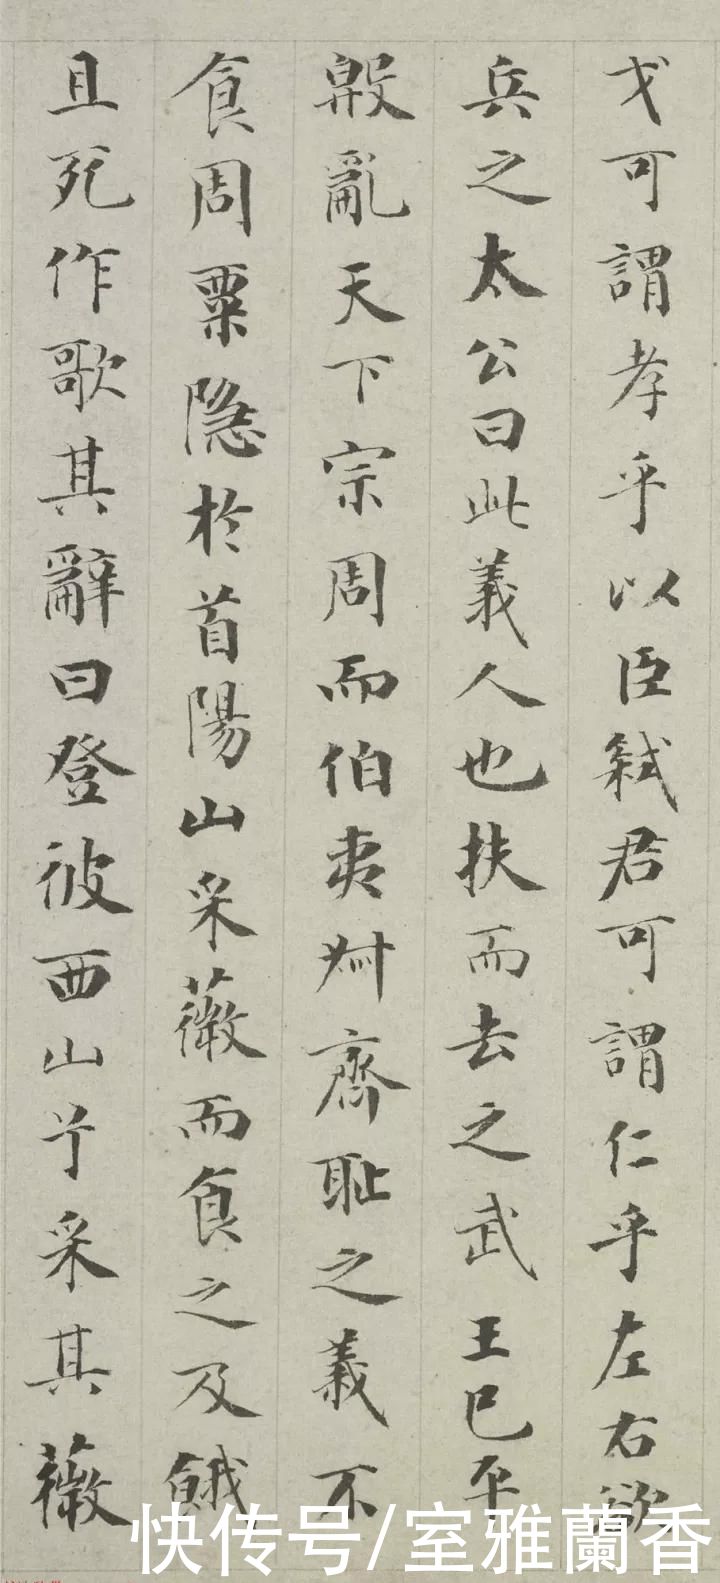 戈可謂孝乎以臣弑君可謂仁乎左右欲
兵之太公曰此義人也扶而去之武王已平
殷亂天下宗周而伯夷叔齊耻之義不
食周粟隐於首陽山采薇而食之及餓
且死作歌其辭曰登彼西山兮采其薇
快传号/室雅蘭香